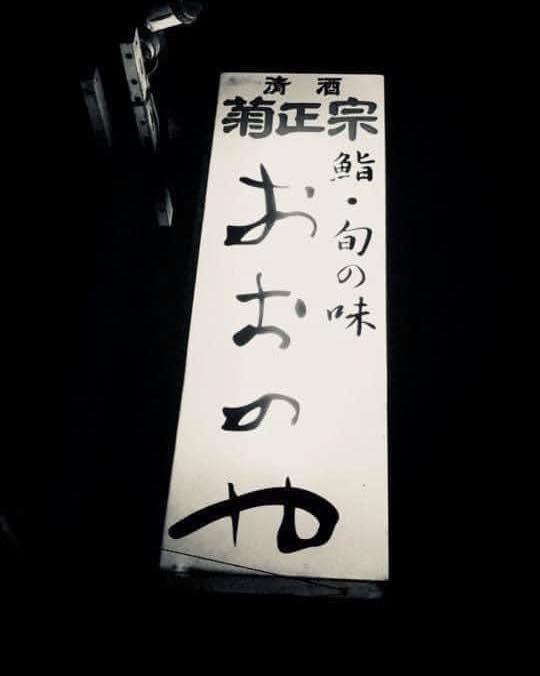 清酒
菊正宗
鮨・旬の味
おおのや